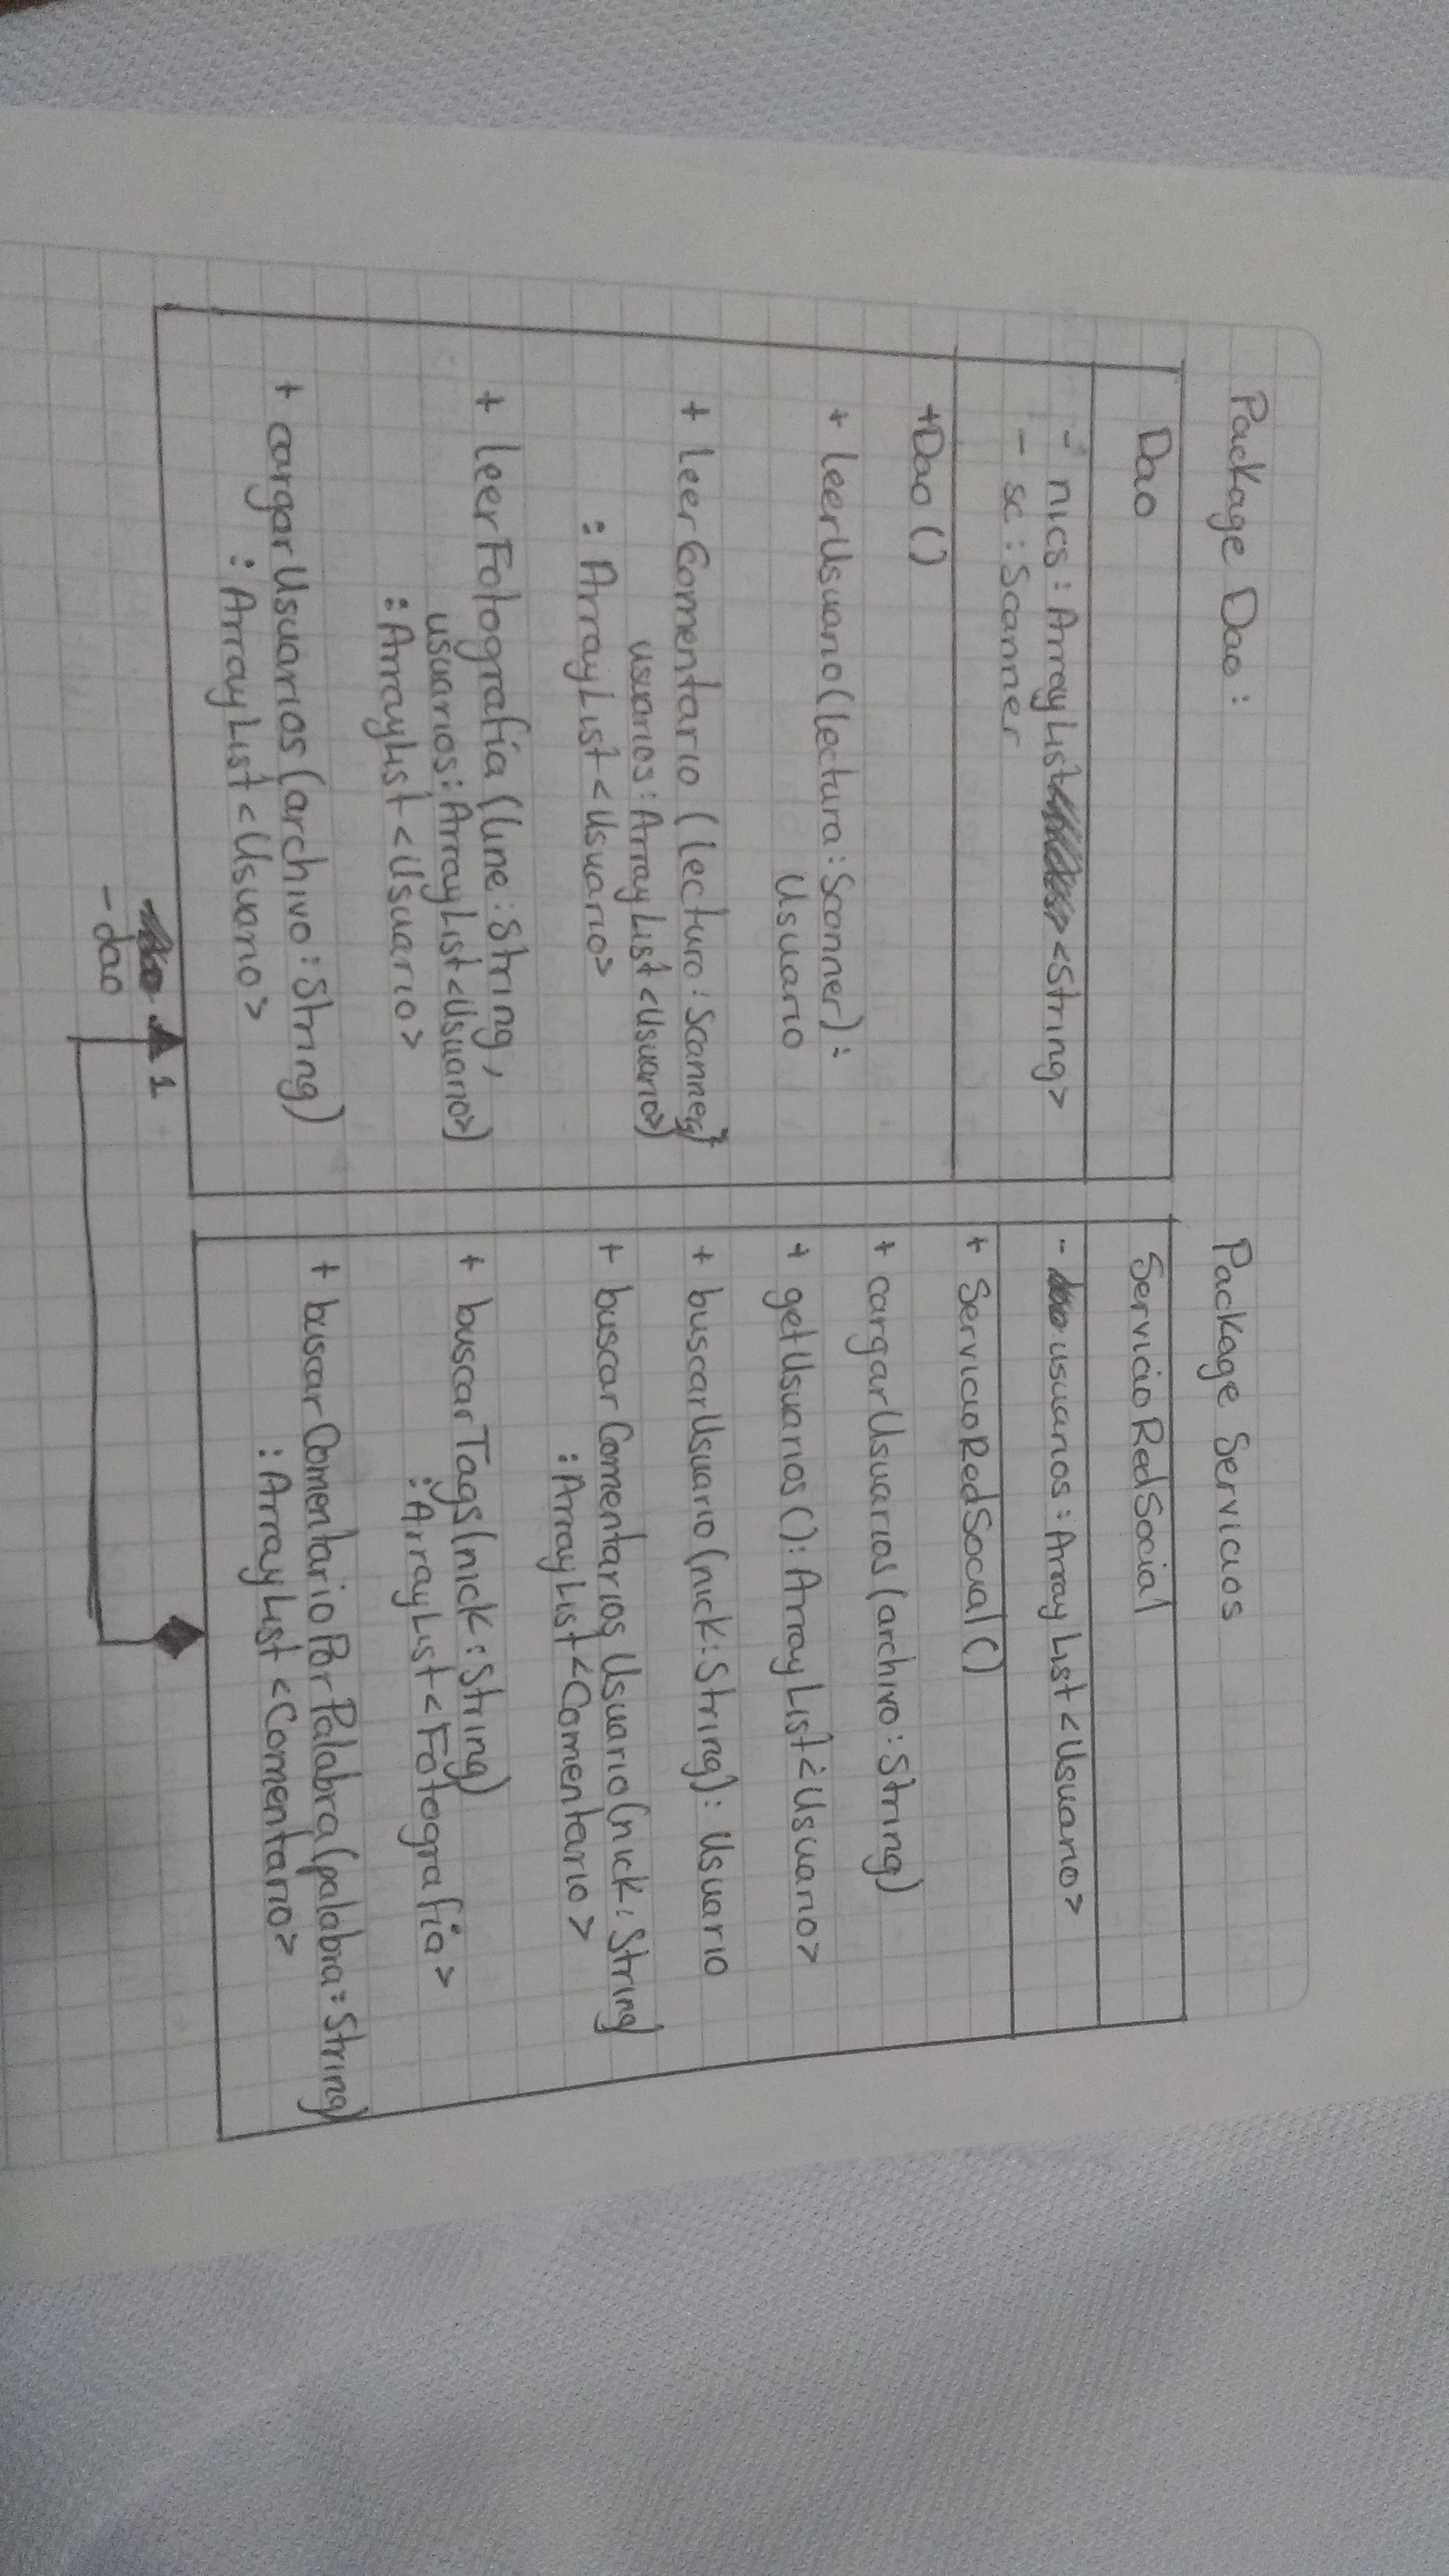 Package Dao:
Dao
- nics: ArrayList <String>
- sc: Scanner
+Dao()
+ leerUsuario(lectura: Scanner):
Usuario
+ leerComentario (lectura: Scanner,
usuarios: ArrayList<Usuario>)
: ArrayList<Usuario>
+ leerFotografía (line: String,
usuarios: ArrayList<Usuario>)
: ArrayList<Usuario>
+ cargarUsuarios (archivo: String)
: ArrayList<Usuario>
1
- dao
Package Servicios
ServicioRedSocial
- usuarios: ArrayList<Usuario>
+ ServicioRedSocial()
+ cargarUsuarios (archivo: String)
+ getUsuarios(): ArrayList<Usuario>
+ buscarUsuario (nick: String): Usuario
+ buscarComentariosUsuario(nick: String)
: ArrayList<Comentario>
+ buscarTags(nick: String)
: ArrayList<Fotografía>
+ buscarComentarioPorPalabra(palabra: String)
: ArrayList<Comentario>